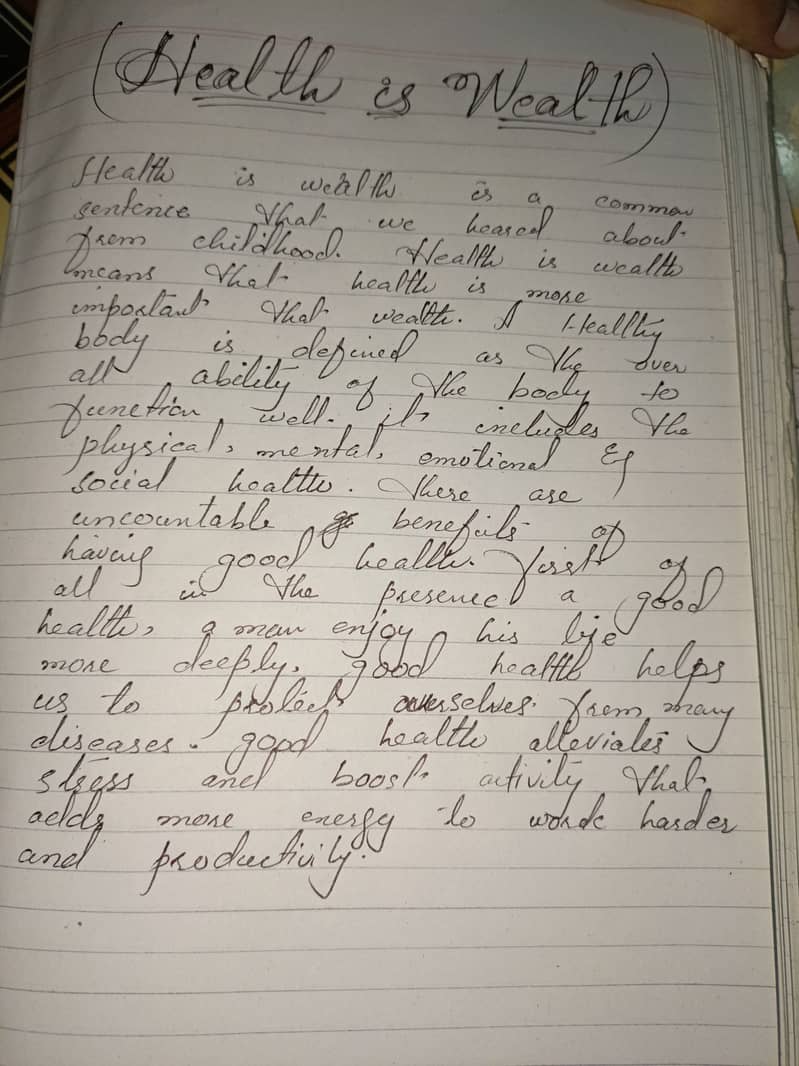 (Health is Wealth)
Health is wealth is a common
sentence that we heared about
from childhood. Health is wealth
means that health is more
important that wealth. A Healthy
body is defined as the over
all ability of the body to
function well. it includes the
physical, mental, emotional &
social health. There are
uncountable benefits of
having good health. first of
all in the presence a good
health, a man enjoy his life
more deeply. good health helps
us to protect ourselves from many
diseases. good health alleviates
stress and boost activity that
adds more energy to work harder
and productivity.